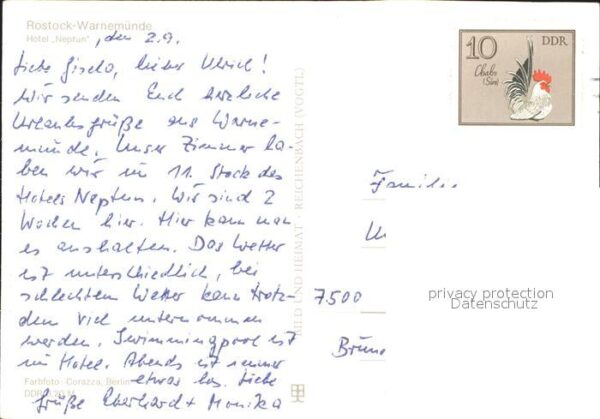 Rostock-Warnemünde
Hotel „Neptun", den 2.9.
Liebe Gisela, lieber Ulrich!
Wir senden Euch herzliche
Urlaubsgrüße aus Warne-
münde. Unser Zimmer ha-
ben wir im 11. Stock des
Hotels Neptun. Wir sind 2
Wochen hier. Hier kann man
es aushalten. Das Wetter
ist unterschiedlich, bei
schlechtem Wetter kann trotz-
dem viel unternommen
werden. Swimmingpool ist
im Hotel. Abends ist immer
etwas los. Liebe
Grüße Eberhard + Monika
Farbfoto: Corazza, Berlin
DDR
BILD UND HEIMAT · REICHENBACH (VOGTL)
10
DDR
Chabo
Familie
7500
privacy protection
Datenschutz